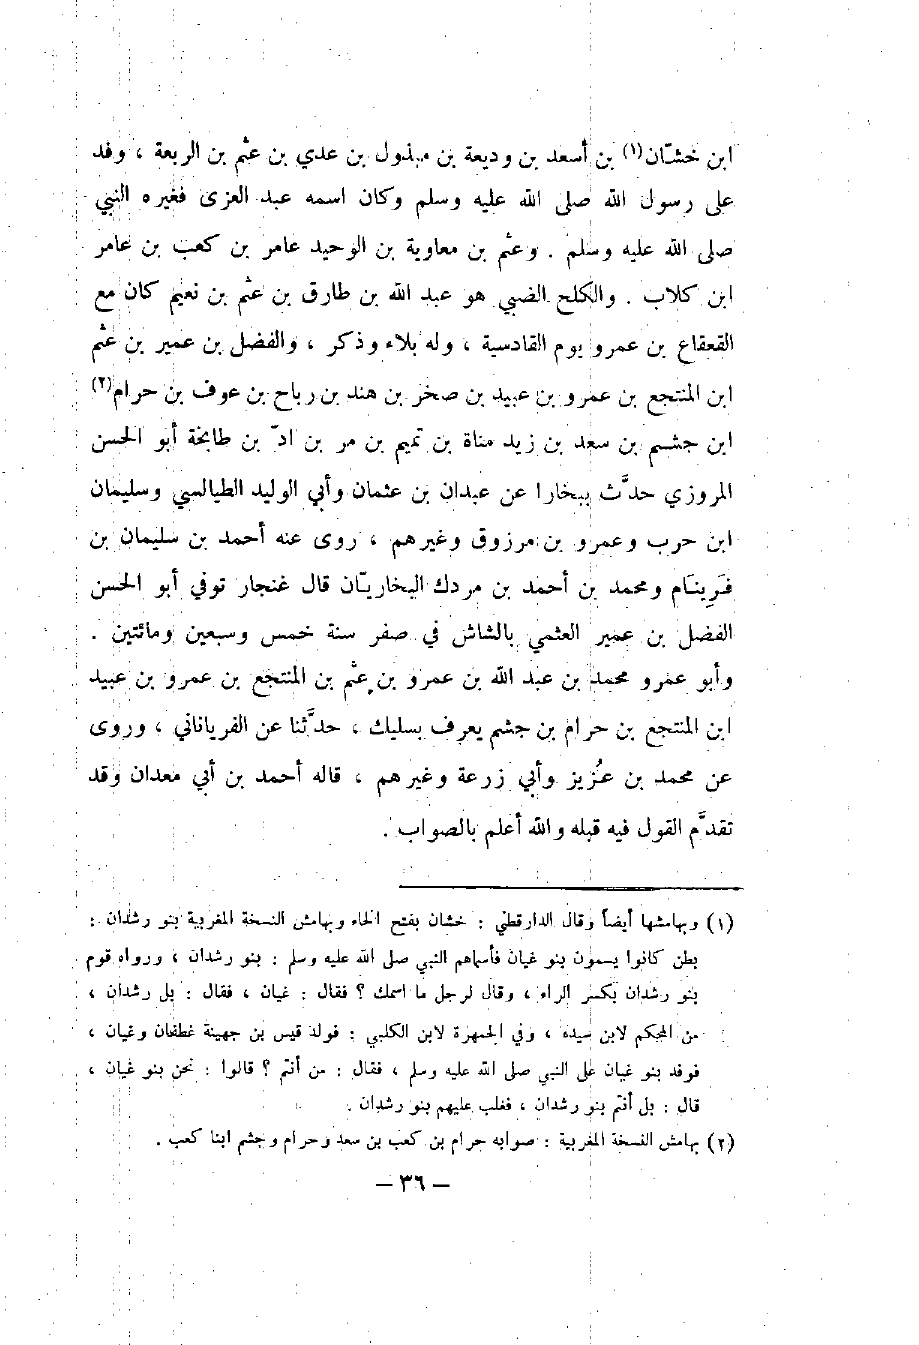 ابن خشَّان(١) بن أسعد بن وديعة بن مبذول بن عدي بن عثم بن الربعة ، وفد
على رسول الله صلى الله عليه وسلم وكان اسمه عبد العزى فغيره النبي
صلى الله عليه وسلم . وعثم بن معاوية بن الوحيد عامر بن كعب بن عامر
ابن كلاب . والكلح الضبي هو عبد الله بن طارق بن عثم بن نعيم كان مع
القعقاع بن عمرو يوم القادسية ، وله بلاء وذكر ، والفضل بن عمير بن عثم
ابن المنتجع بن عمرو بن عبيد بن صخر بن هند بن رباح بن عوف بن حرام(٢)
ابن جشم بن سعد بن زيد مناة بن تميم بن مر بن ادّ بن طابخة أبو الحسن
المروزي حدَّث ببخارا عن عبدان بن عثمان وأبي الوليد الطيالسي وسليمان
ابن حرب وعمرو بن مرزوق وغيرهم ، روى عنه أحمد بن سليمان بن
فَرِينَام ومحمد بن أحمد بن مردك البخاريّان قال غنجار توفي أبو الحسن
الفضل بن عمير العثمي بالشاش في صفر سنة خمس وسبعين ومائتين .
وأبو عمرو محمد بن عبد الله بن عمرو بن عثم بن المنتجع بن عمرو بن عبيد
ابن المنتجع بن حرام بن جشم يعرف بسليك ، حدَّثنا عن الفرياناني ، وروى
عن محمد بن عُزيز وأبي زرعة وغيرهم ، قاله أحمد بن أبي معدان وقد
تقدَّم القول فيه قبله والله أعلم بالصواب .
(١) وبهامشها أيضاً وقال الدارقطي : خشان بفتح الخاء وبهامش النسخة المغربية بنو رشدان :
بطن كانوا يسمون بنو غيان فأسماهم النبي صلى الله عليه وسلم : بنو رشدان ، ورواه قوم
بنو رشدان بكسر الراء ، وقال لرجل ما اسمك ؟ فقال : غيان ، فقال : بل رشدان ،
من المحكم لابن سيده ، وفي الجمهرة لابن الكلبي : فولد قيس بن جهينة غطفان وغيان ،
فوفد بنو غيان على النبي صلى الله عليه وسلم ، فقال : من أنتم ؟ قالوا : نحن بنو غيان ،
قال : بل أنتم بنو رشدان ، فغلب عليهم بنو رشدان .
(٢) بهامش النسخة المغربية : صوابه حرام بن كعب بن سعد وحرام وجشم ابنا كعب .
— ٣٦ —